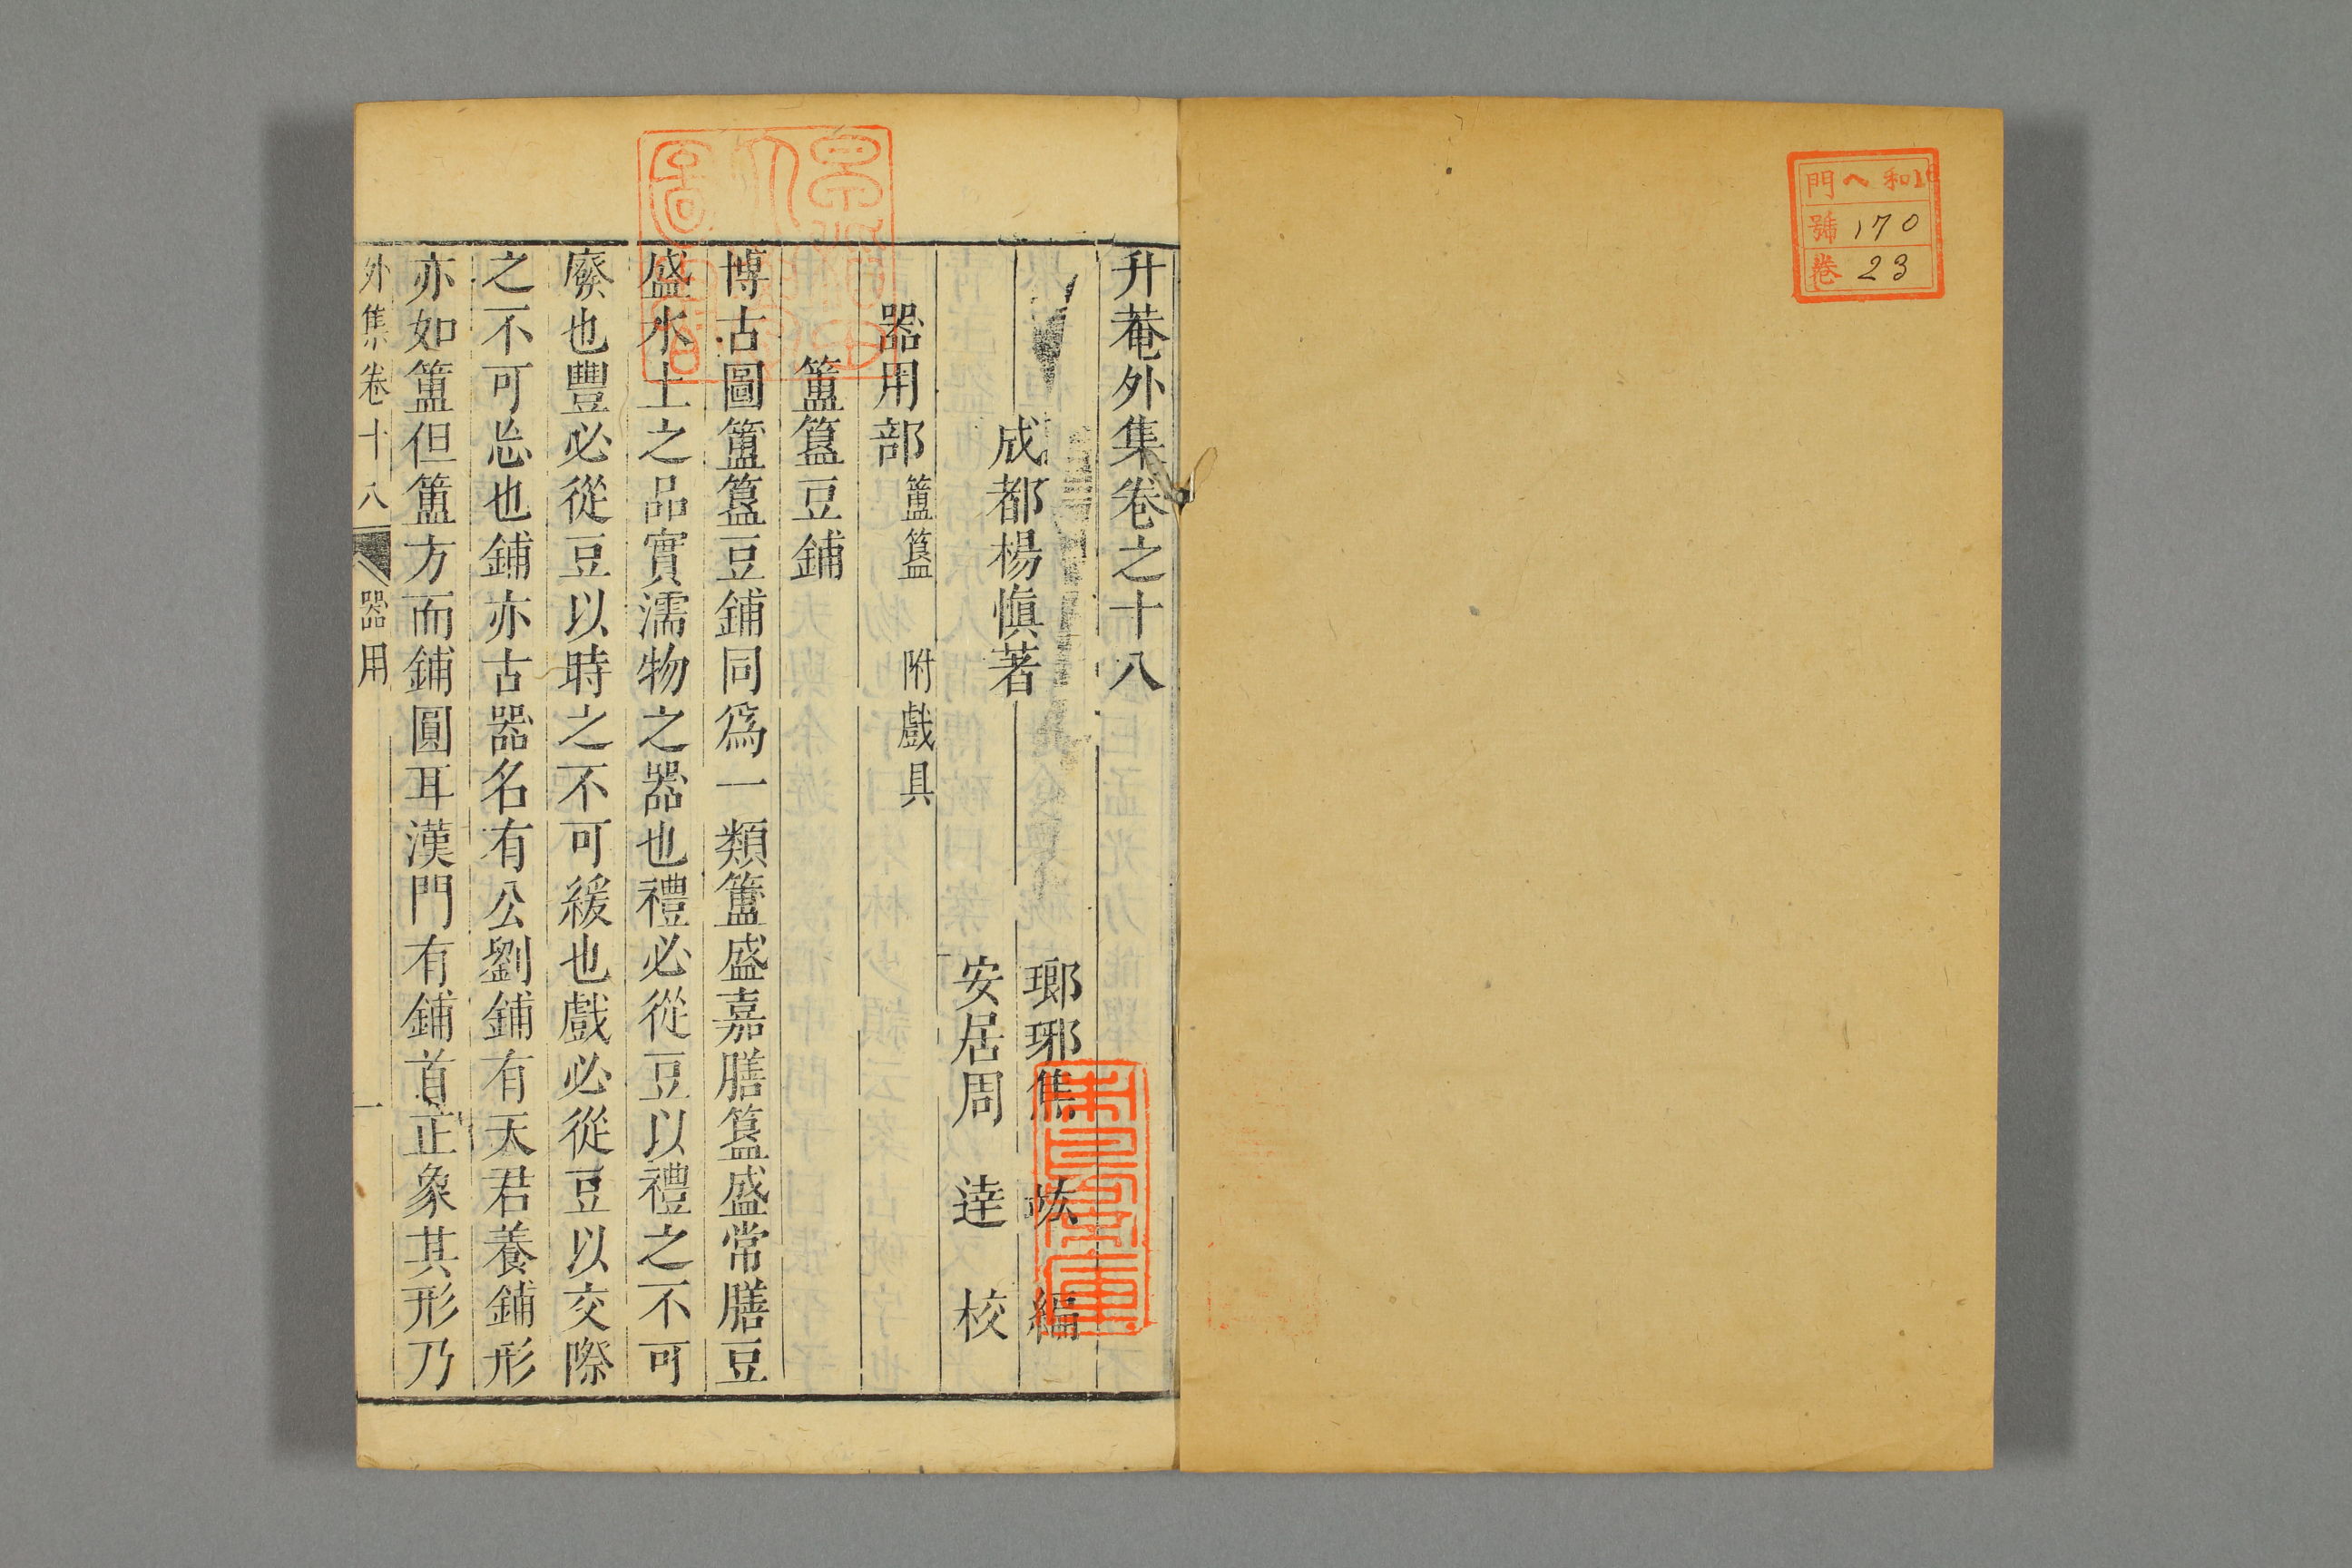 門 ヘ 和16
號 170
卷 23
升菴外集卷之十八
成都楊愼著
瑯琊焦 竑 編
安居周 達 校
器用部 簠簋 附戲具
簠簋豆鋪
博古圖簠簋豆鋪同爲一類簠盛嘉膳簋盛常膳豆
盛水土之品實濡物之器也禮必從豆以禮之不可
廢也豐必從豆以時之不可緩也戲必從豆以交際
之不可忘也鋪亦古器名有公劉鋪有天君養鋪形
亦如簠但簠方而鋪圓耳漢門有鋪首正象其形乃
外集卷十八 器用 一